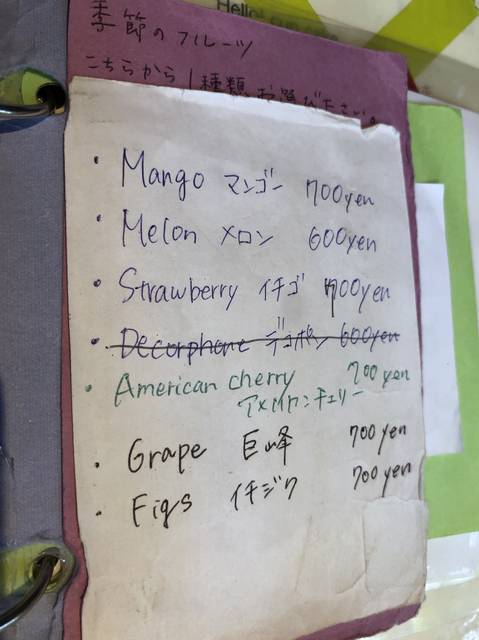 Hello!
季節のフルーツ
こちらから1種類お選び下さい。
・Mango マンゴー 700yen
・Melon メロン 600yen
・Strawberry イチゴ 700yen
・Decorphone デコポン 600yen
・American cherry 700yen
アメリカンチェリー
・Grape 巨峰 700yen
・Figs イチジク 700yen